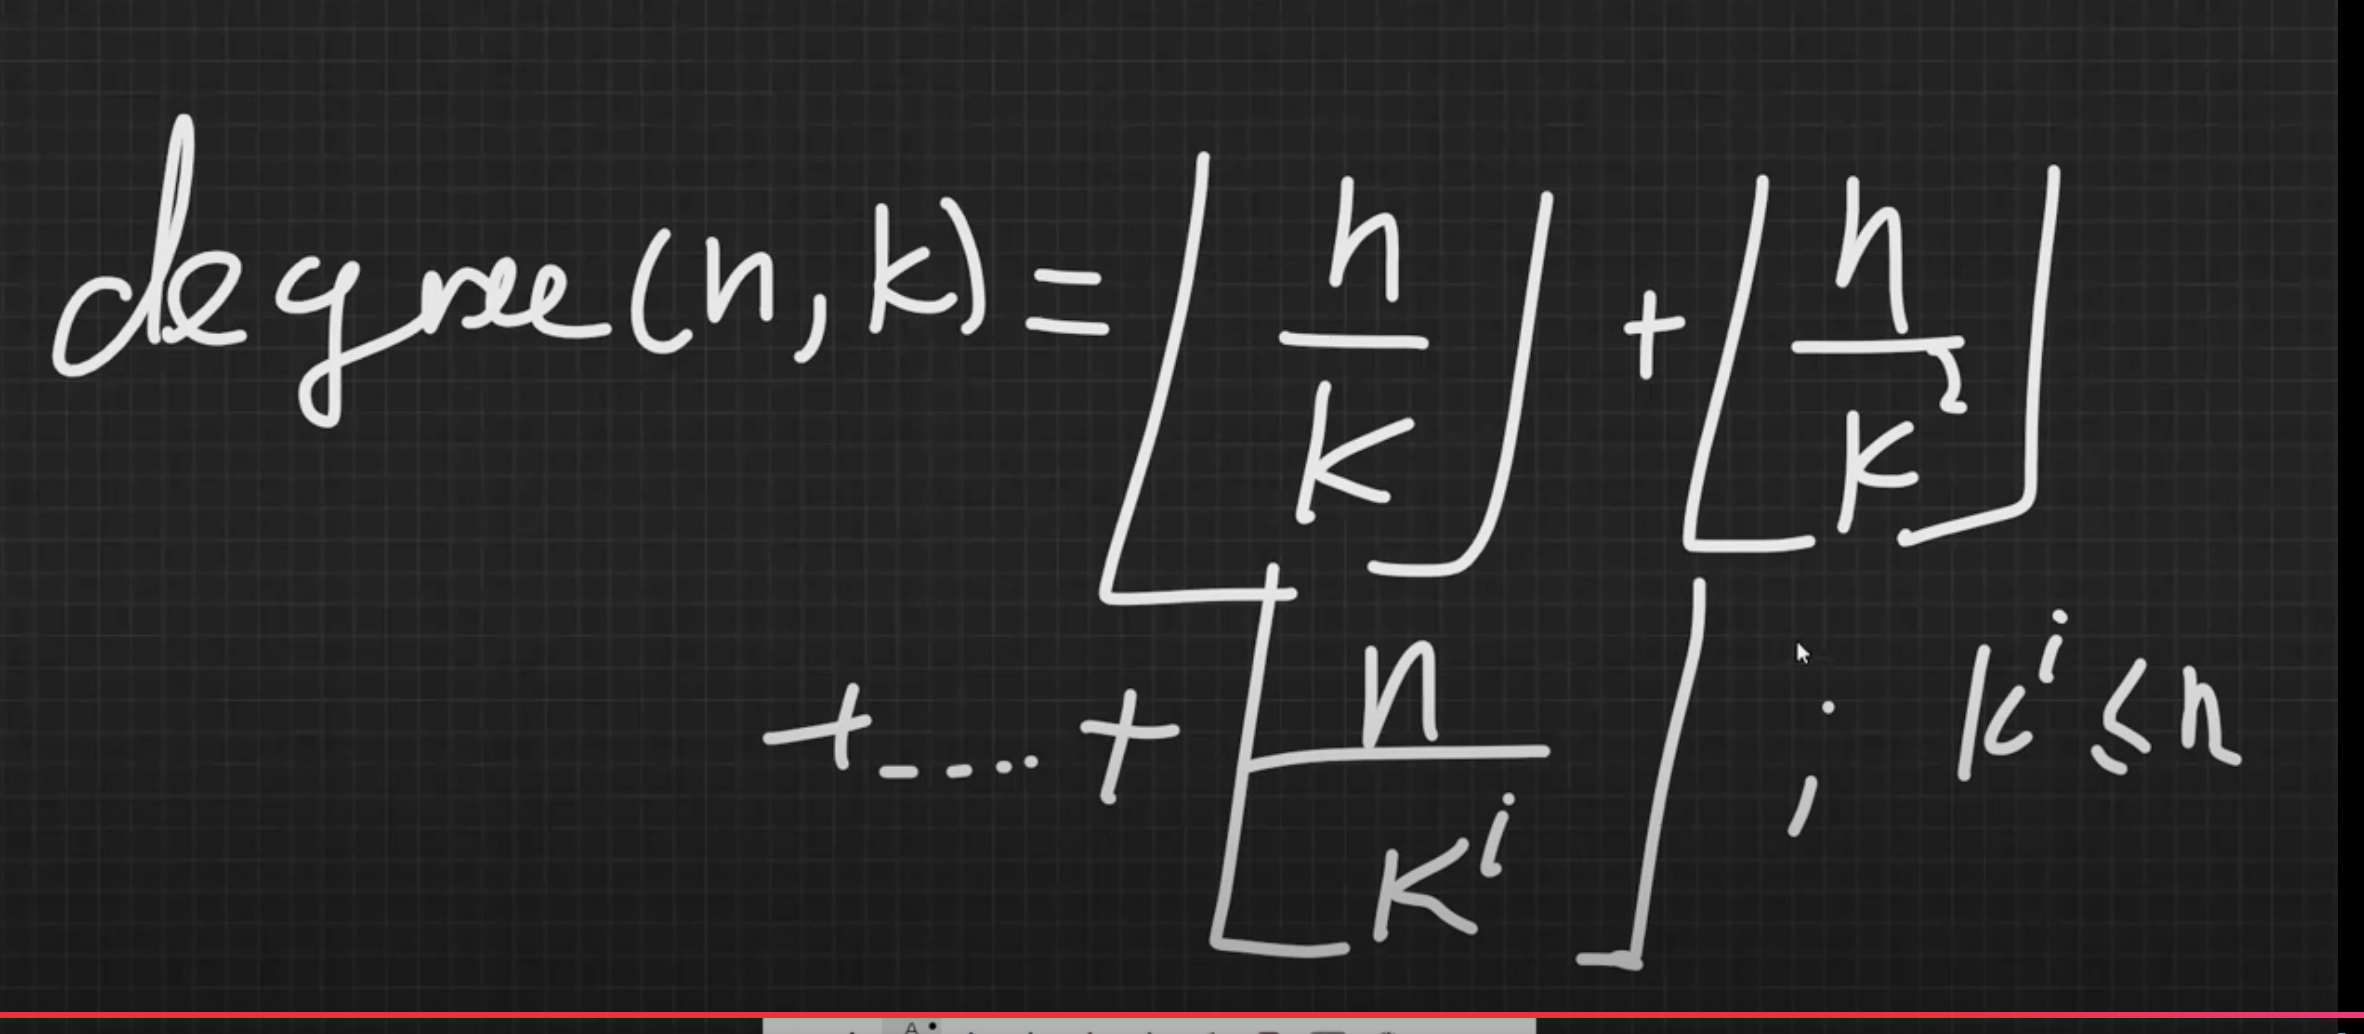 degree(n, k) = ⌊n/k⌋ + ⌊n/k²⌋
+ .... + ⌊n/kⁱ⌋ ; kⁱ ≤ n
A